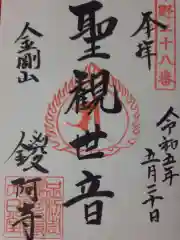 野三十八番
奉拝
令和五年
五月二十日
聖観世音
金剛山
鑁阿寺